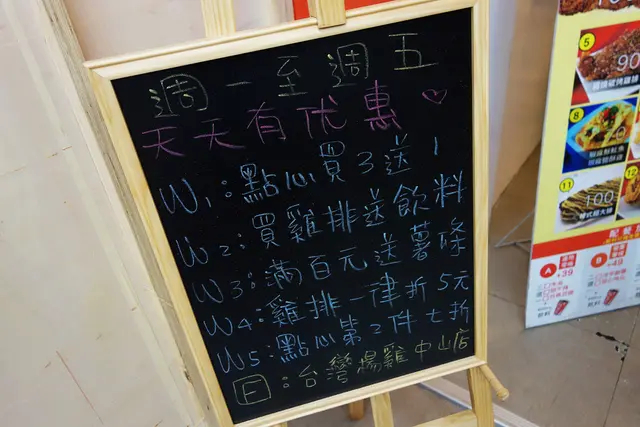 週一至週五
天天有优惠
W1:點心買3送1
W2:買雞排送飲料
W3:滿百元送薯條
W4:雞排一律折5元
W5:點心第2件七折
F:台灣揚雞中山店
5
90
8
9
11
100
12
A
+39
B
+49